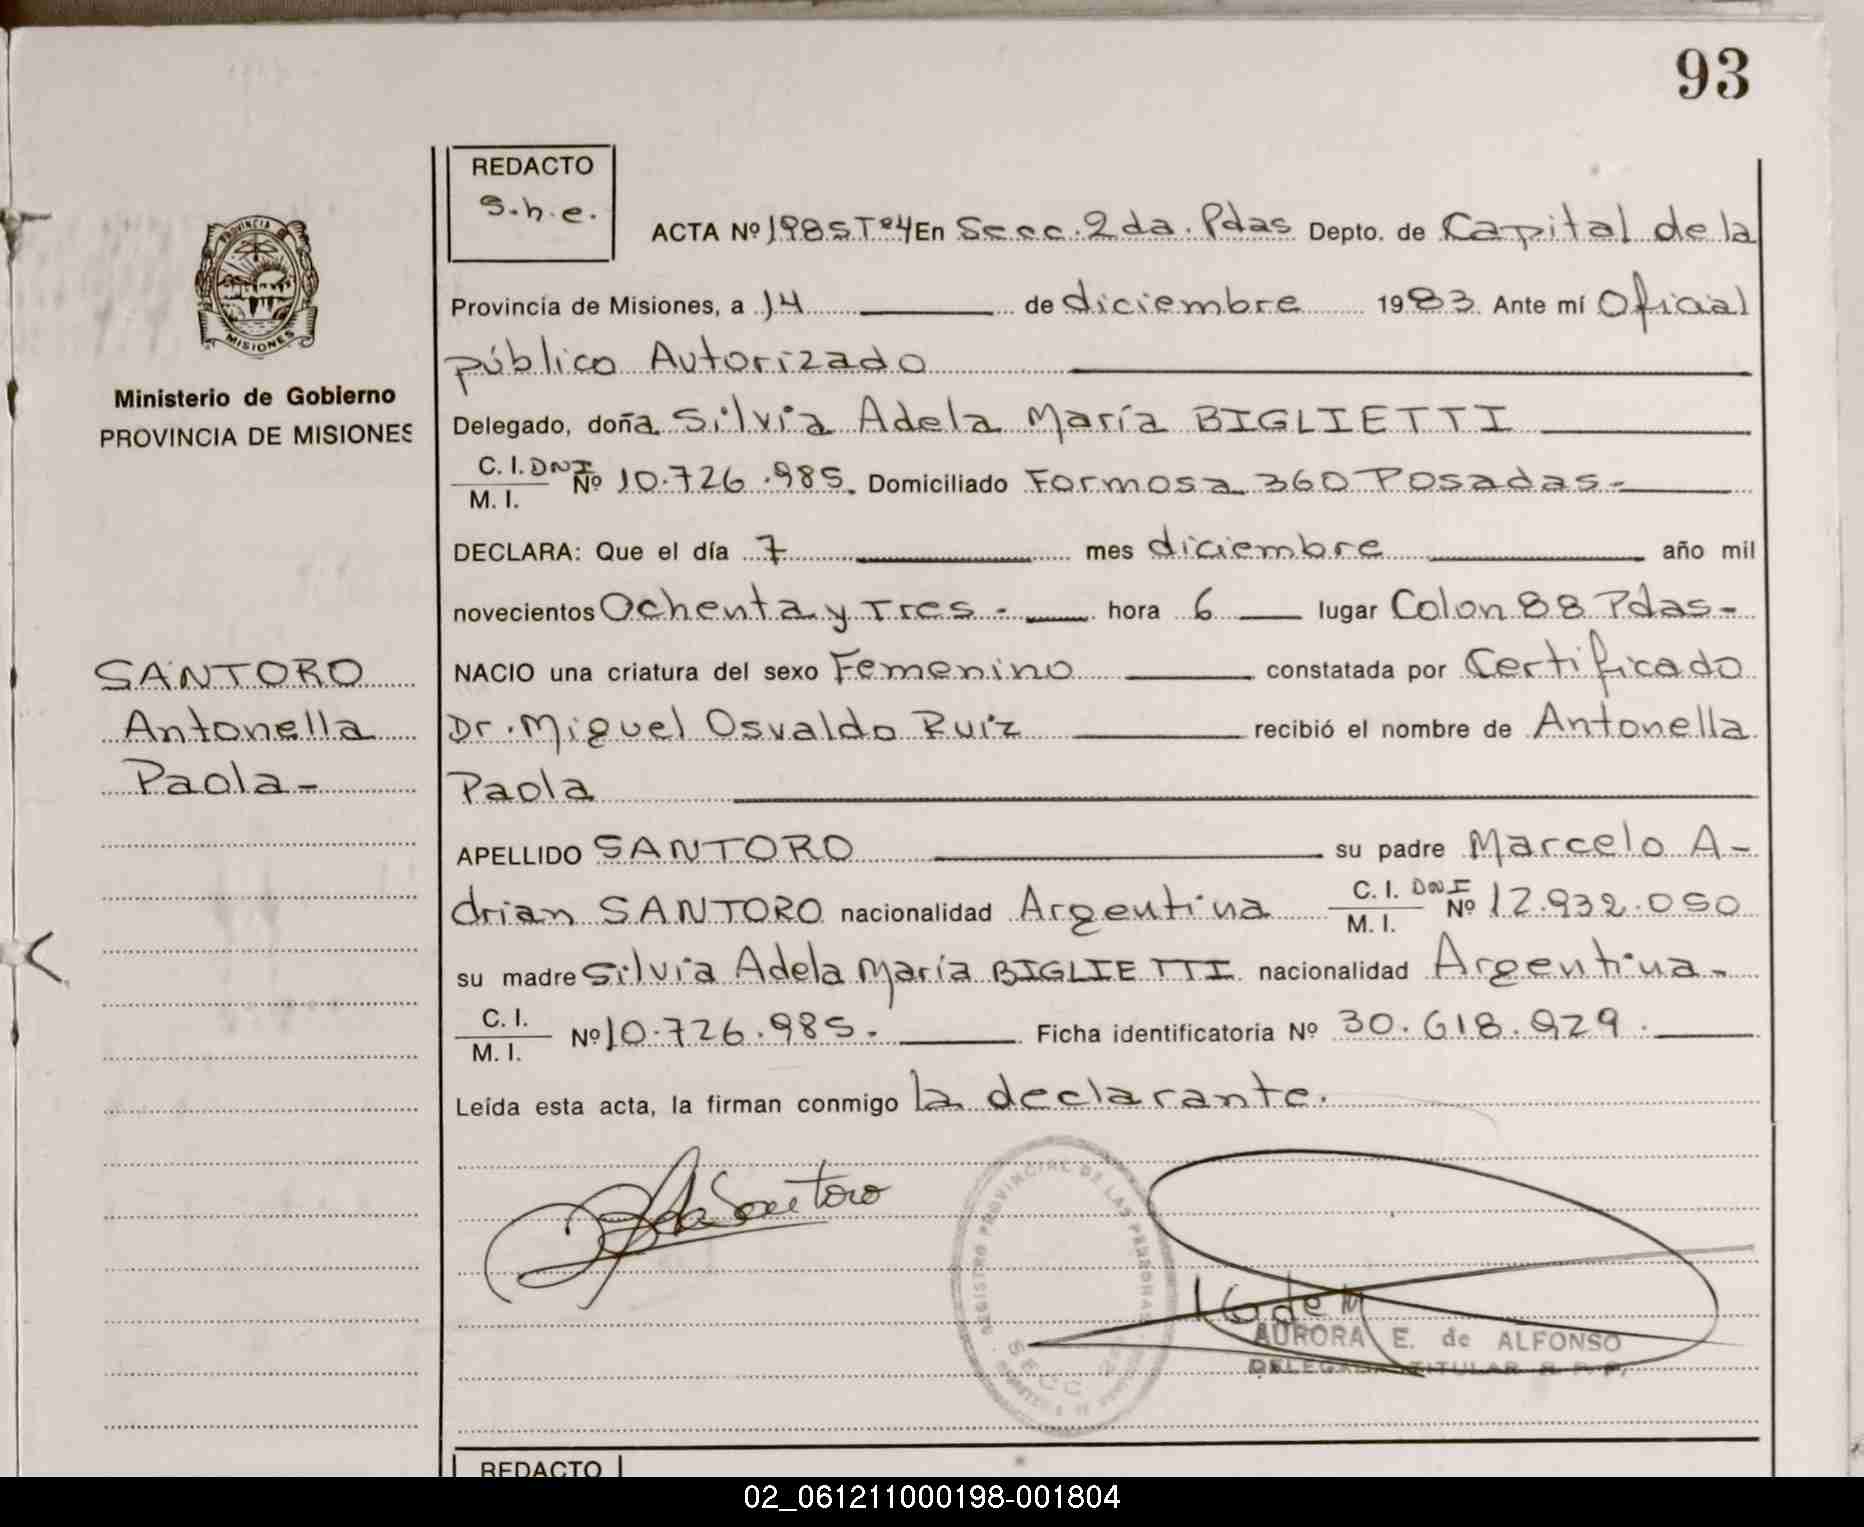 93
REDACTO
s.h.e.
ACTA Nº 1985 Tº4 En Secc. 2da. Pdas Depto. de Capital de la
PROVINCIA
MISIONES
Provincia de Misiones, a 14 de diciembre 1983. Ante mí Oficial
público Autorizado
Ministerio de Gobierno
PROVINCIA DE MISIONES
Delegado, doña Silvia Adela María BIGLIETTI
C. I. DNI
M. I. Nº 10.726.985. Domiciliado Formosa 360 Posadas-
DECLARA: Que el día 7 mes diciembre año mil
novecientos Ochenta y Tres - hora 6 lugar Colon 88 Pdas-
SANTORO
Antonella
Paola-
NACIO una criatura del sexo Femenino constatada por Certificado
Dr. Miguel Osvaldo Ruiz recibió el nombre de Antonella
Paola
APELLIDO SANTORO su padre Marcelo A-
drian SANTORO nacionalidad Argentina C. I. DNI M. I. Nº 12.932.050
su madre Silvia Adela María BIGLIETTI nacionalidad Argentina-
C. I.
M. I. Nº 10.726.985.- Ficha identificatoria Nº 30.618.929.
Leída esta acta, la firman conmigo la declarante.
Santoro
REGISTRO PROVINCIAL DE LAS PERSONAS
SECC
AURORA E. de ALFONSO
DELEGADA TITULAR R. P. P.
REDACTO
02_061211000198-001804